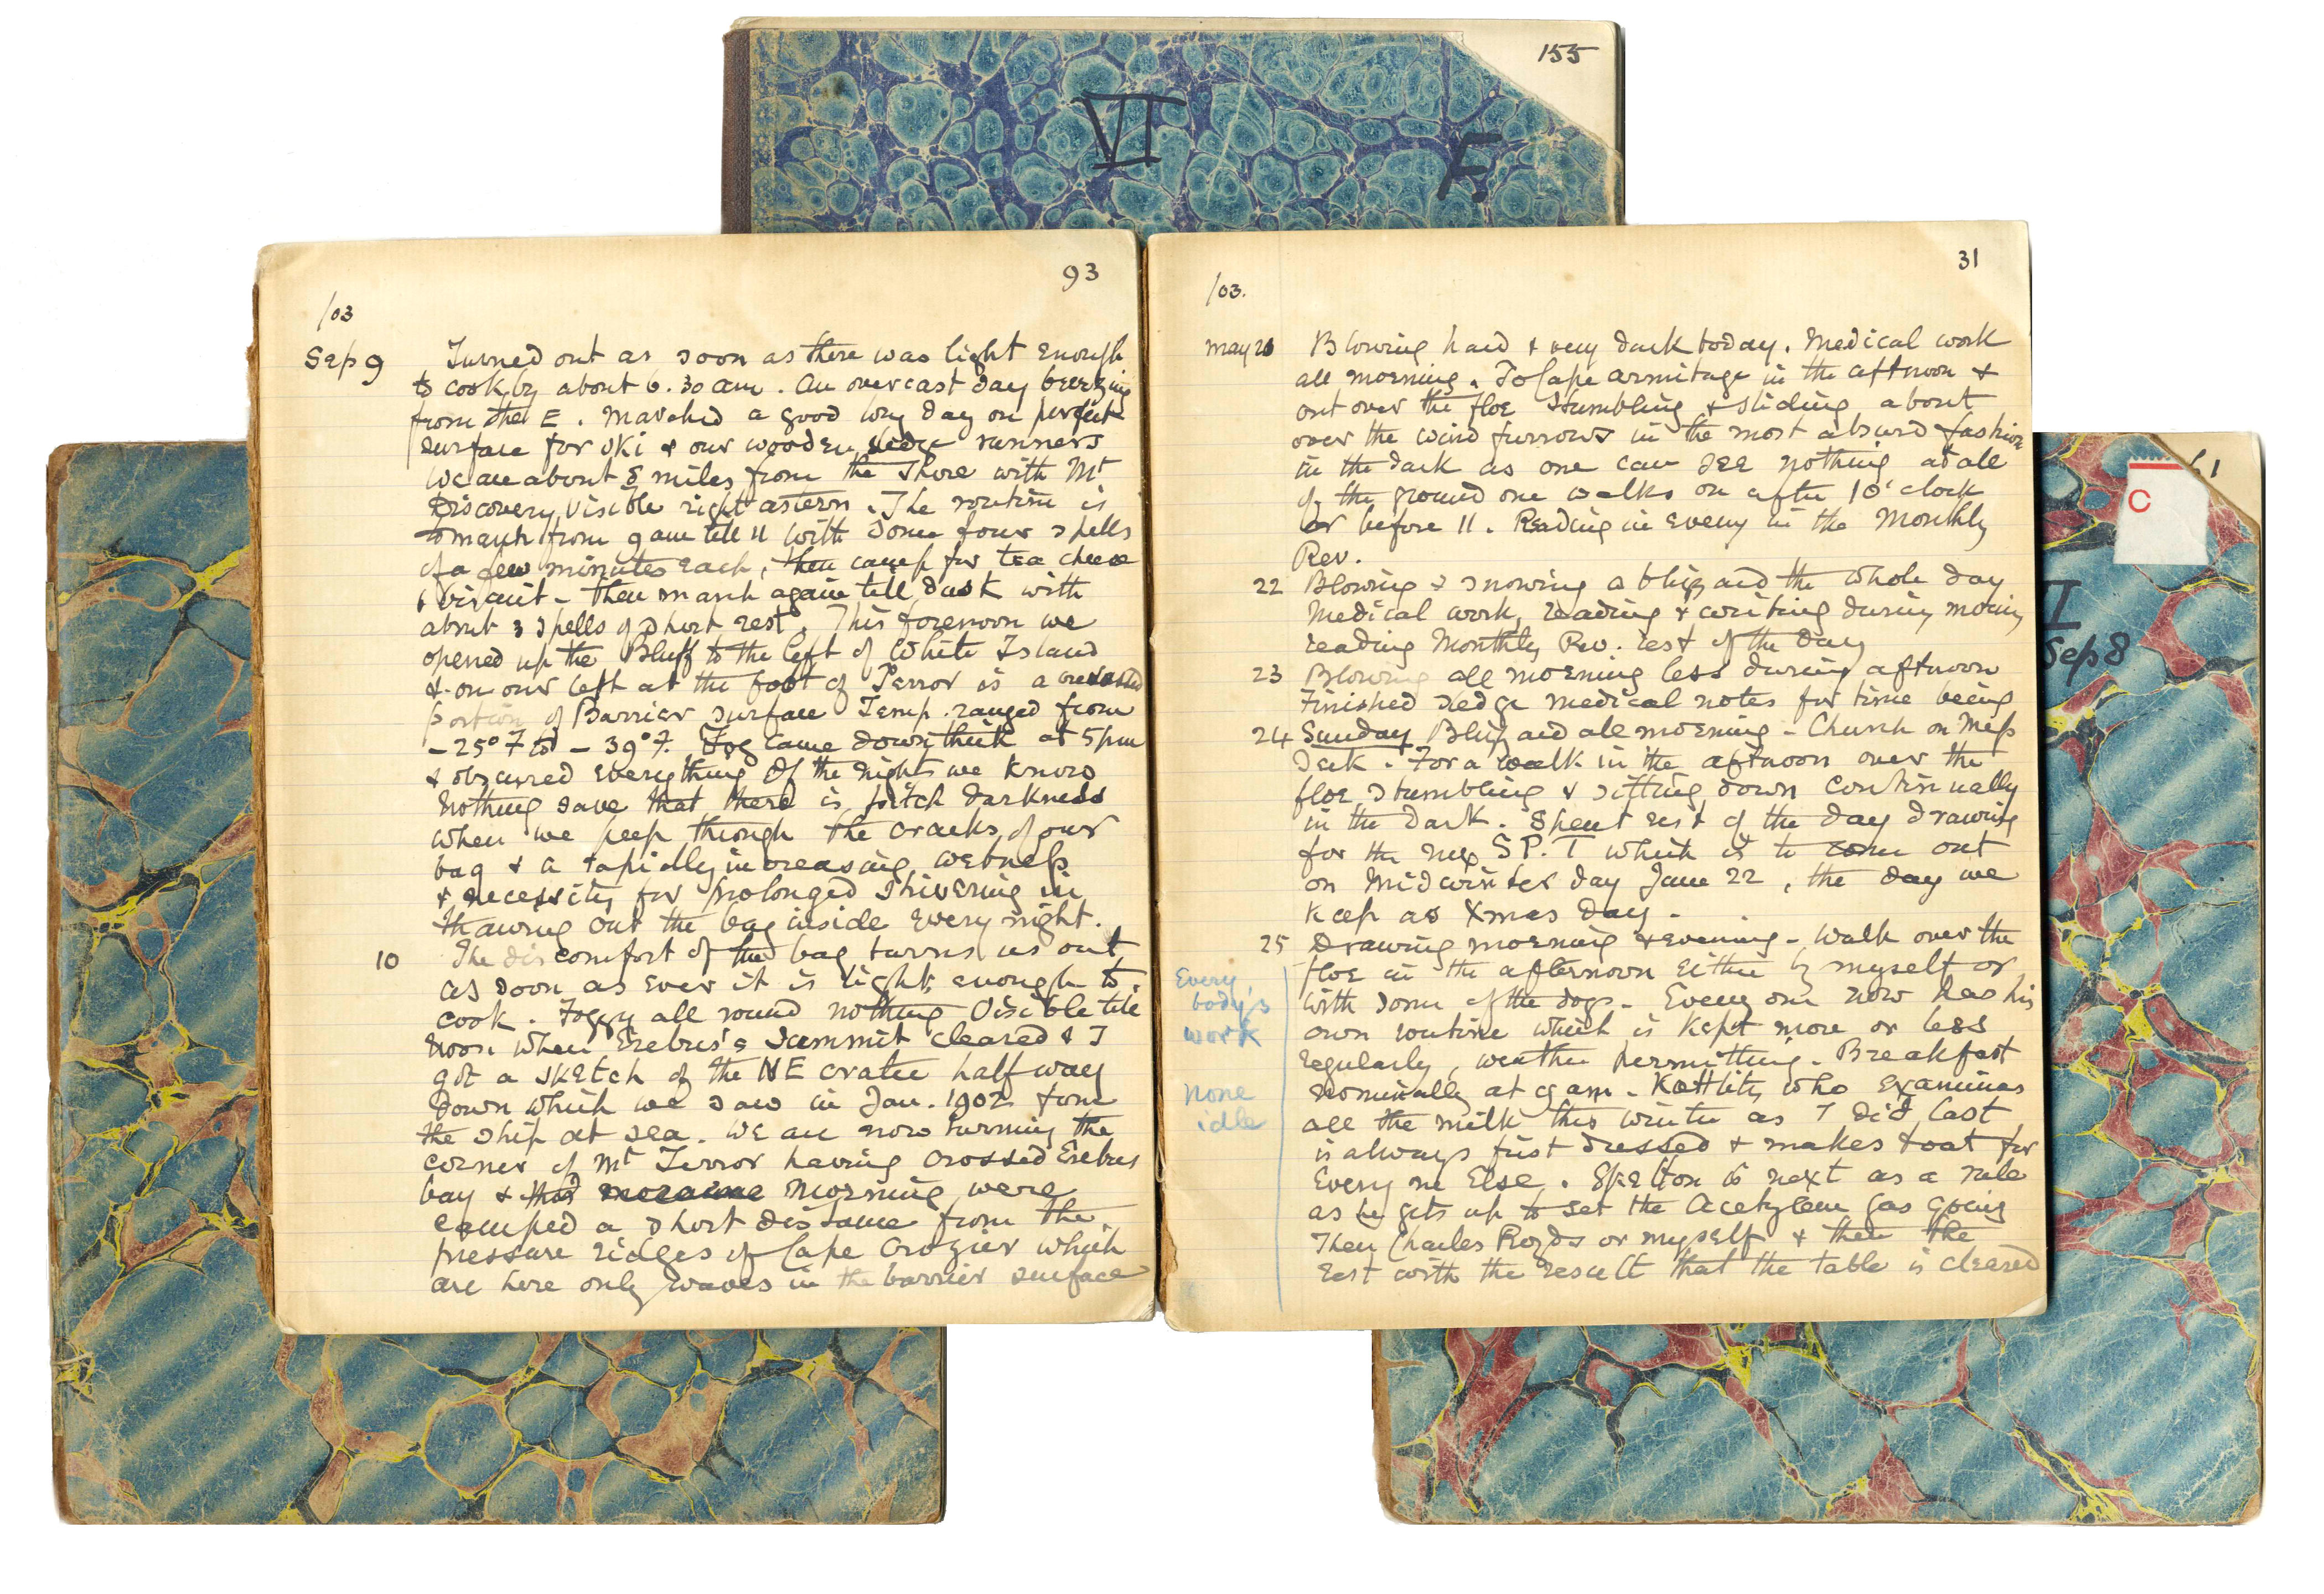 155
VI
F.
93
/03
Sep 9 Turned out as soon as there was light enough
to cook by about 6.30 am. An overcast day breezing
from the E. Marched a good long day on perfect
surface for ski & our wooden sledge runners
We are about 8 miles from the shore with Mt
Discovery visible right astern. The routine is
to march from 9 am till 11 with some four spells
of a few minutes each, then camp for tea cheese
& biscuit - then march again till dusk with
about 3 spells of short rest. This forenoon we
opened up the Bluff to the left of White Island
& on our left at the foot of Terror is a
portion of Barrier surface Temp. ranged from
-25°F to -39°F. Fog came down thick at 5 pm
& obscured everything Of the nights we know
nothing save that there is pitch darkness
when we peep through the cracks of our
bag & a rapidly increasing wetness
& necessity for prolonged shivering in
thawing out the bag inside every night.
10 The discomfort of the bag turns us out
as soon as ever it is light enough to
cook. Foggy all round nothing visible till
noon when Erebus's summit cleared & I
got a sketch of the NE crater half way
down which we saw in Jan. 1902 from
the ship at sea. We are now turning the
corner of Mt Terror having crossed Erebus
bay & this morning were
camped a short distance from the
pressure ridges of Cape Crozier which
are here only waves in the barrier surface
31
/03.
May 21 Blowing hard & very dark today. Medical work
all morning. To Cape Armitage in the aftnoon &
out over the floe stumbling & sliding about
over the wind furrows in the most absurd fashion
in the dark as one can see nothing at all
of the ground one walks on after 1 o'clock
or before 11. Reading in eveng in the Monthly
Rev.
22 Blowing & snowing a blizzard the whole day
Medical work, reading & writing during morning
reading Monthly Rev. rest of the day
23 Blowing all morning less during aftnoon
Finished sledge medical notes for time being
24 Sunday Blizzard all morning - Church on Mess
Deck. For a walk in the aftnoon over the
floe stumbling & sitting down continually
in the dark. Spent rest of the day drawing
for the new S.P.T which is to come out
on Midwinter day June 22, the day we
keep as Xmas Day -
25 Drawing morning & evening - Walk over the
floe in the afternoon either by myself or
with some of the dogs - Every one now has his
own routine which is kept more or less
regularly, weather permitting. Breakfast
nominally at 9 am - Koettlitz who examines
all the milk this winter as I did last
is always first dressed & makes toast for
every one else. Skelton is next as a rule
as he gets up to set the acetylene gas going
Then Charles Royds or myself & then the
rest with the result that the table is cleared
Every
body's
work
none
idle
C
61
I
Sep 8